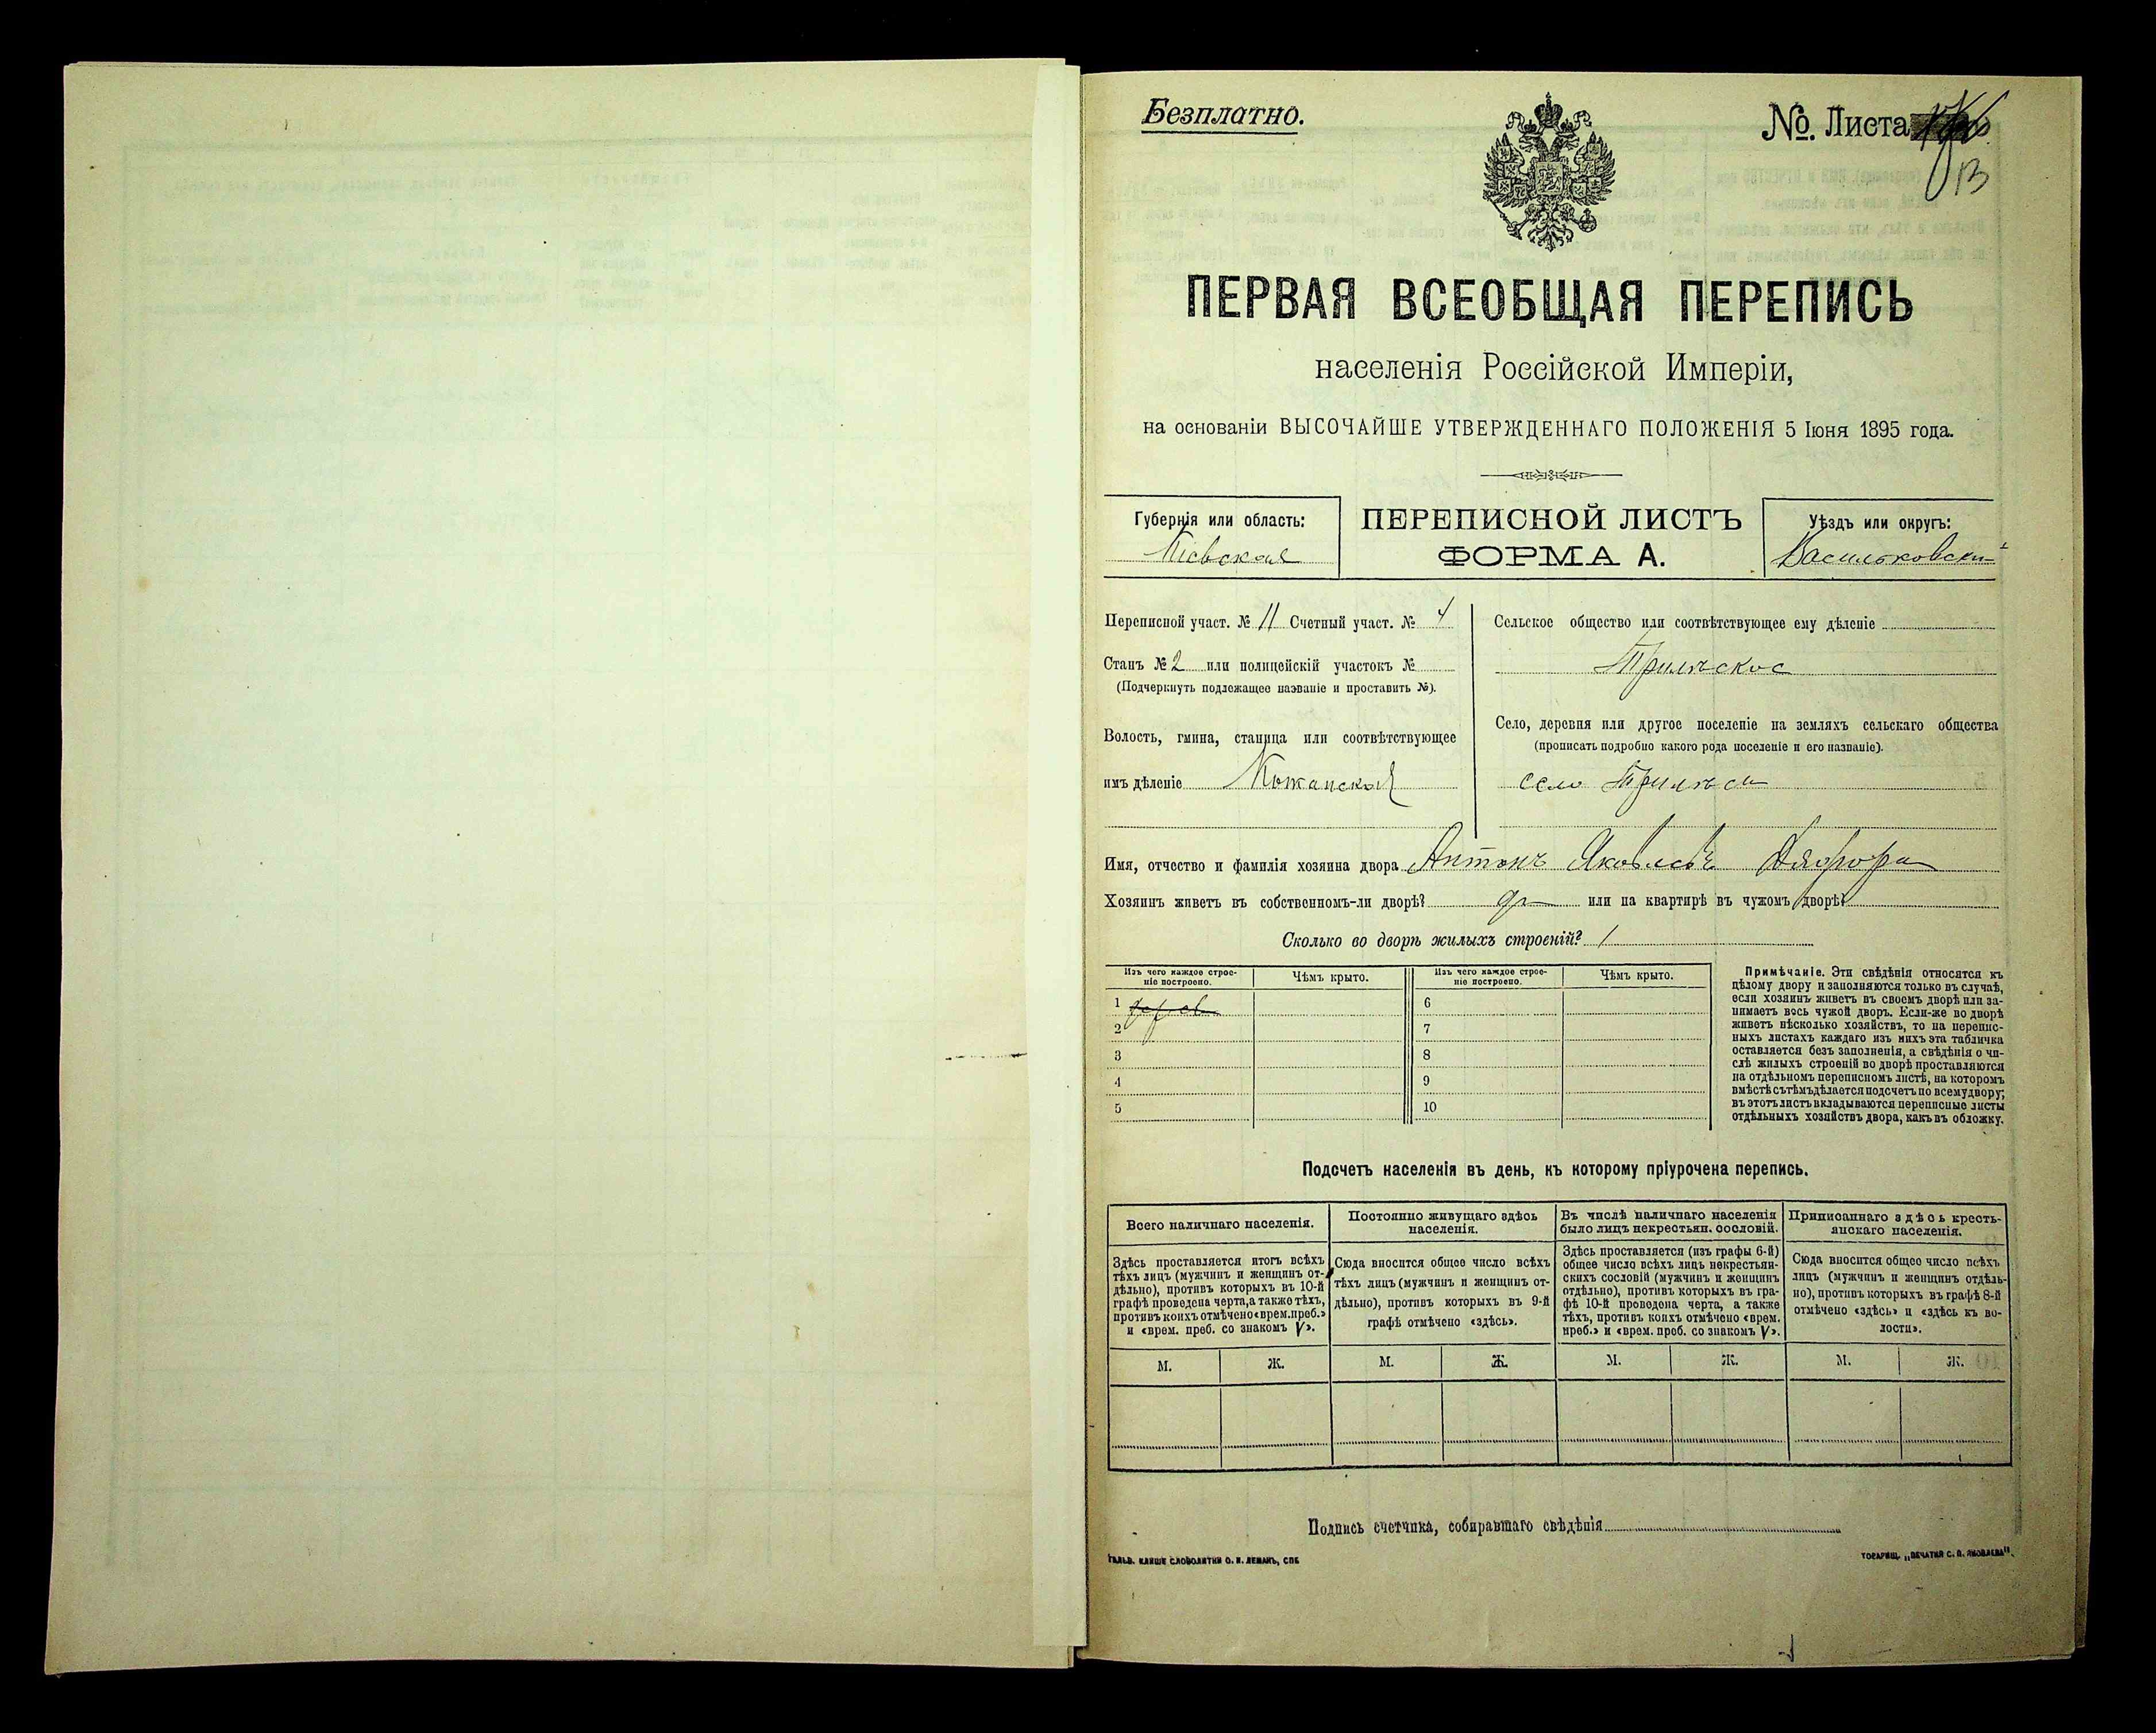 Безплатно.
№. Листа
13
ПЕРВАЯ ВСЕОБЩАЯ ПЕРЕПИСЬ
населенія Россійской Имперіи,
на основаніи ВЫСОЧАЙШЕ УТВЕРЖДЕННАГО ПОЛОЖЕНІЯ 5 Іюня 1895 года.
Губернія или область:
Кіевская
ПЕРЕПИСНОЙ ЛИСТЪ
ФОРМА А.
Уѣздъ или округъ:
Васильковскій
Переписной участ. № 11 Счетный участ. № 4
Станъ № 2 или полицейскій участокъ №
(Подчеркнуть подлежащее названіе и проставить №).
Волость, гмина, станица или соотвѣтствующее
имъ дѣленіе Кожанская
Сельское общество или соотвѣтствующее ему дѣленіе
Трилѣское
Село, деревня или другое поселеніе на земляхъ сельскаго общества
(прописать подробно какого рода поселеніе и его названіе).
село Трилѣсы
Имя, отчество и фамилія хозяина двора Антонъ Яковлевъ
Хозяинъ живетъ въ собственномъ-ли дворѣ? да или на квартирѣ въ чужомъ дворѣ?
Сколько во дворѣ жилыхъ строеній? 1
Изъ чего каждое строе-
ніе построено.
Чѣмъ крыто.
Изъ чего каждое строе-
ніе построено.
Чѣмъ крыто.
1 6
2 7
3 8
4 9
5 10
Примѣчаніе. Эти свѣдѣнія относятся къ
цѣлому двору и заполняются только въ случаѣ,
если хозяинъ живетъ въ своемъ дворѣ или за-
нимаетъ весь чужой дворъ. Если-же во дворѣ
живетъ нѣсколько хозяйствъ, то на перепис-
ныхъ листахъ каждаго изъ нихъ эта табличка
оставляется безъ заполненія, а свѣдѣнія о чи-
слѣ жилыхъ строеній во дворѣ проставляются
на отдѣльномъ переписномъ листѣ, на которомъ
вмѣстѣ съ тѣмъ дѣлается подсчетъ по всему двору;
въ этотъ листъ вкладываются переписные листы
отдѣльныхъ хозяйствъ двора, какъ въ обложку.
Подсчетъ населенія въ день, къ которому пріурочена перепись.
Всего наличнаго населенія.
Здѣсь проставляется итогъ всѣхъ
тѣхъ лицъ (мужчинъ и женщинъ от-
дѣльно), противъ которыхъ въ 10-й
графѣ проведена черта, а также тѣхъ,
противъ коихъ отмѣчено «врем. преб.»
и «врем. преб. со знакомъ V».
Постоянно живущаго здѣсь
населенія.
Сюда вносится общее число всѣхъ
тѣхъ лицъ (мужчинъ и женщинъ от-
дѣльно), противъ которыхъ въ 9-й
графѣ отмѣчено «здѣсь».
Въ числѣ наличнаго населенія
было лицъ некрестьян. сословій.
Здѣсь проставляется (изъ графы 6-й)
общее число всѣхъ лицъ некрестьян-
скихъ сословій (мужчинъ и женщинъ
отдѣльно), противъ которыхъ въ гра-
фѣ 10-й проведена черта, а также
тѣхъ, противъ коихъ отмѣчено «врем.
преб.» и «врем. преб. со знакомъ V».
Приписаннаго здѣсь кресть-
янскаго населенія.
Сюда вносится общее число всѣхъ
лицъ (мужчинъ и женщинъ отдѣль-
но), противъ которыхъ въ графѣ 8-й
отмѣчено «здѣсь» и «здѣсь къ во-
лости».
М. Ж. М. Ж. М. Ж. М. Ж.
Подпись счетчика, собиравшаго свѣдѣнія
ГАЛЬВ. КЛИШЕ СЛОВОЛИТНИ О. И. ЛЕМАНЪ, СПБ
ТОВАРИЩ. „ПЕЧАТНЯ С. П. ЯКОВЛЕВА“.